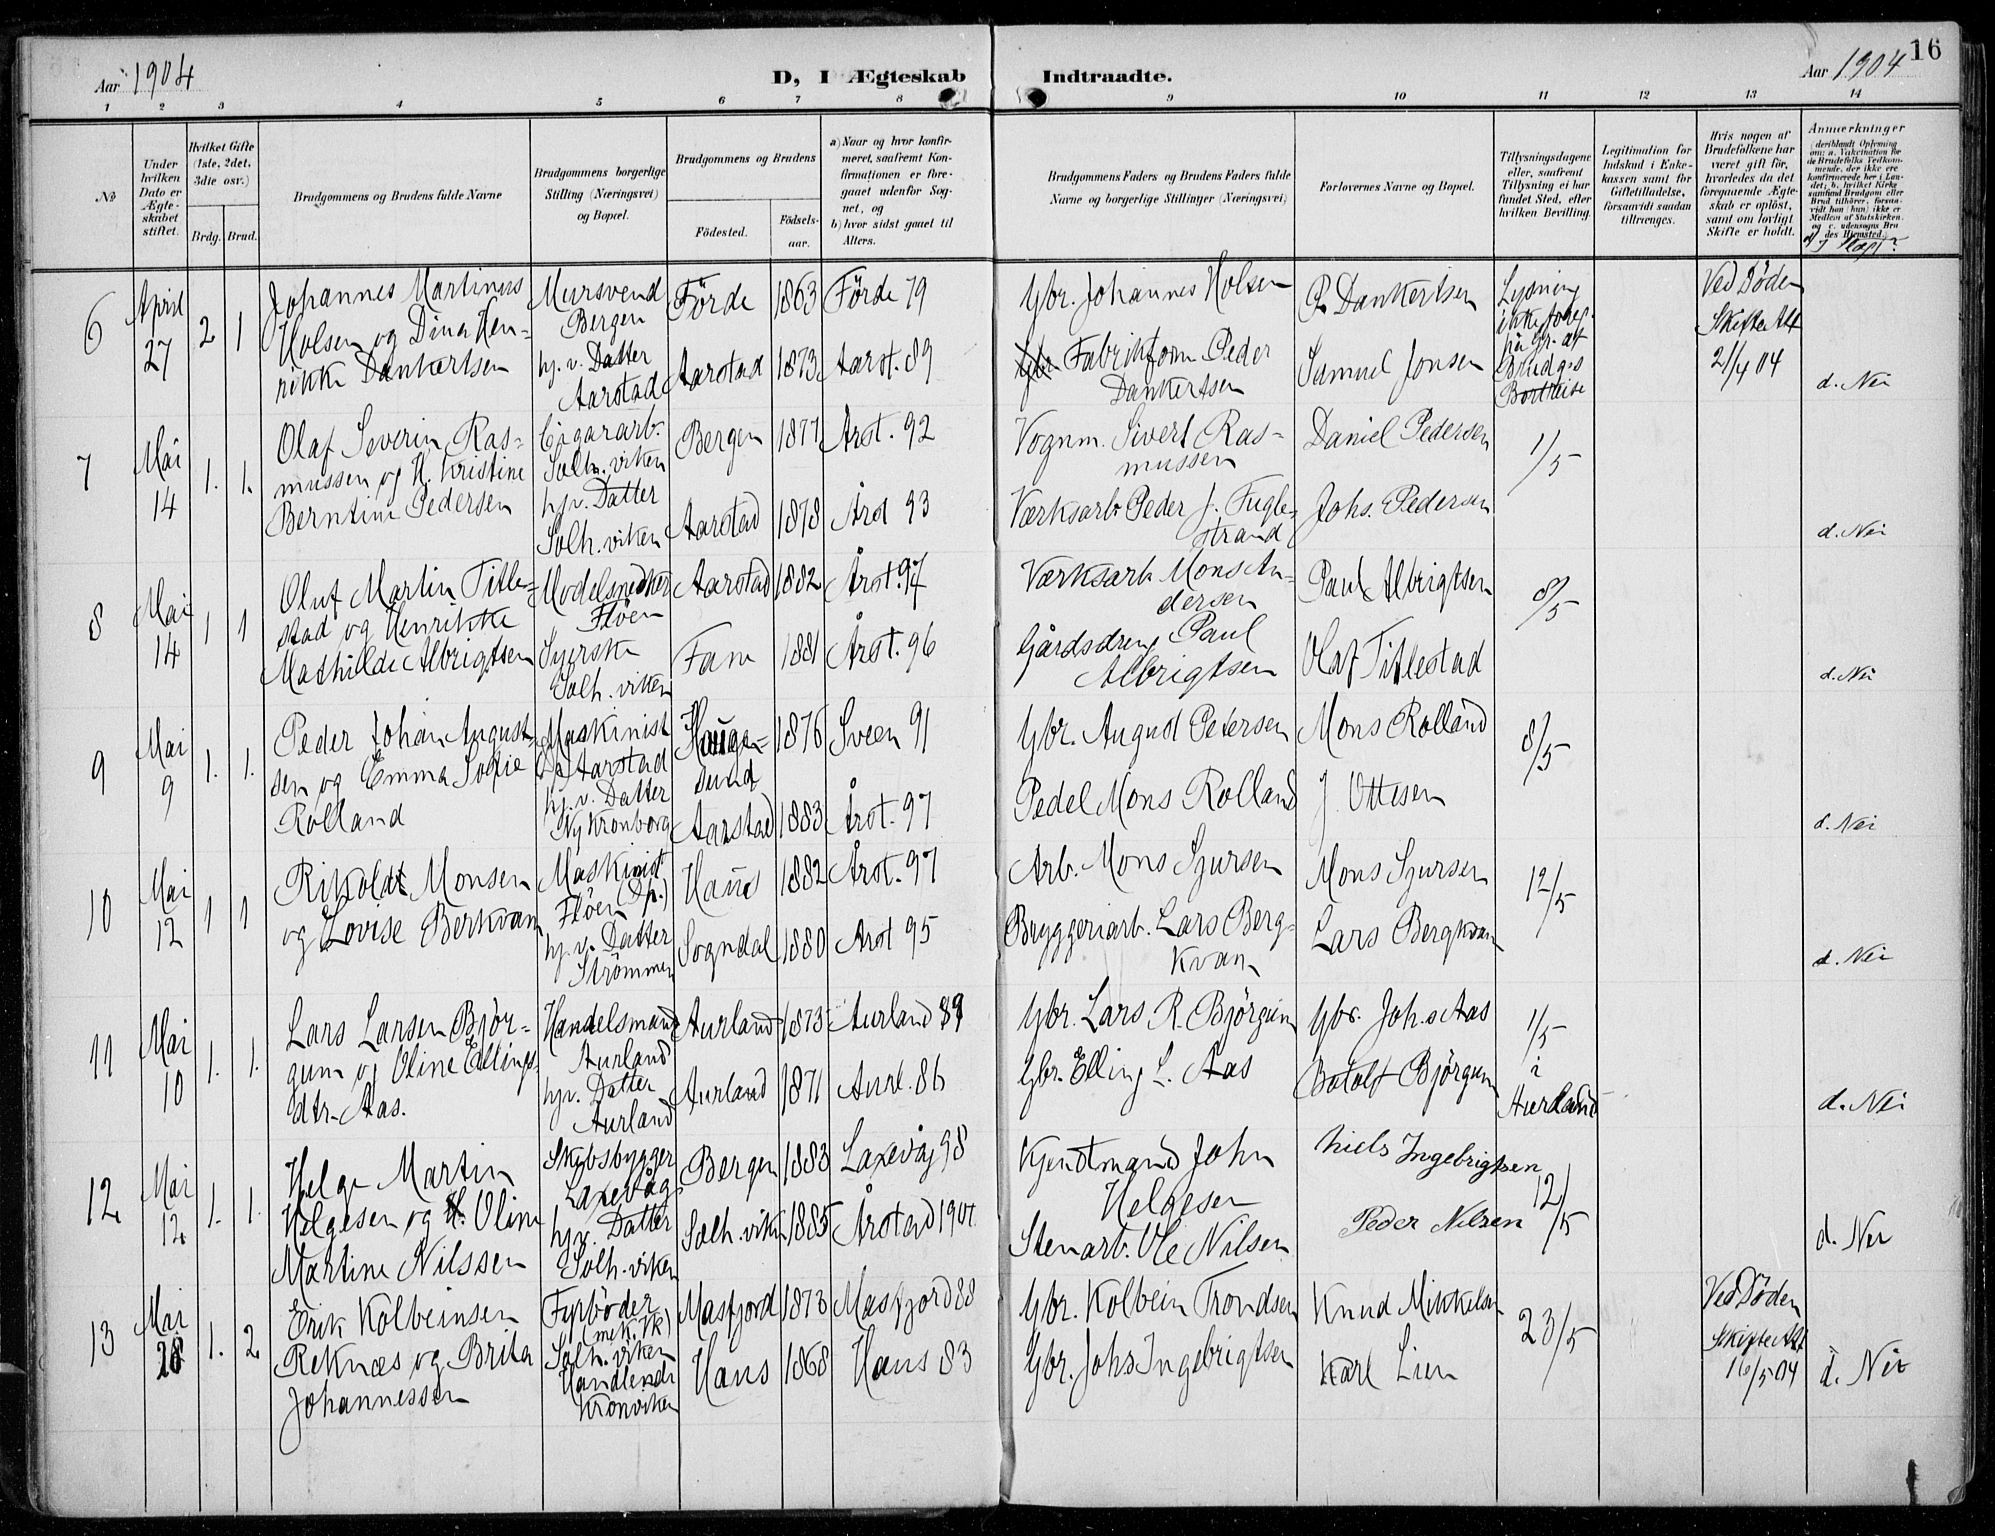 Aar 1904
D, I Ægteskab Indtraadte.
Aar 1904
16
1 2 3 4 5 6 7 8 9 10 11 12 13 14
No
Under hvilken Dato er Ægteskabet stiftet.
Hvilket Gifte (1ste, 2det, 3die osv.)
Brdg. Brud.
Brudgommens og Brudens fulde Navne
Brudgommens borgerlige Stilling (Næringsvei) og Bopæl.
Brudgommens og Brudens
Fødested.
Fødselsaar.
a) Naar og hvor konfirmeret, saafremt Konfirmationen er foregaaet udenfor Sognet, og
b) hvor sidst gaaet til Alters.
Brudgommens Faders og Brudens Faders fulde Navne og borgerlige Stillinger (Næringsvei)
Forlovernes Navne og Bopæl.
Tillysningsdagene eller, saafremt Tillysning ei har fundet Sted, efter hvilken Bevilling.
Legitimation for Indskud i Enkekassen samt for Giftetilladelse, forsaavidt saadan tiltrænges.
Hvis nogen af Brudefolkene har været gift før, hvorledes da det foregaaende Ægteskab er opløst, samt om lovligt Skifte er holdt.
Anmerkninger (deriblandt Oplysning om: a. Vakcination for de Brudefolks Vedkommende, der ikke ere konfirmerede her i Landet; b. hvilket Kirkesamfund Brudgom eller Brud tilhører, forsaavidt han (hun) ikke er Medlem af Statskirken, og c. udensogns Brudes Hjemsted.)
6
April 27
2 1
Johannes Martinus
Holsen og Dina Hen-
rikke Dankertsen
Mursvend
Bergen
hj. v. Datter
Aarstad
Förde 1863 Förde 79
Aarstad 1873 Aarst. 89
Gbr. Johannes Holsen
Fabrikform Peder
Dankertsen
P. Dankertsen
Samuel Jonsen
Lysning
ikke foreg.
på gr. af
Brudgs
Bortreise
Ved Döden
Skifte Att
21/4 04
d. Nei
7
Mai 14
1. 1.
Olaf Severin Ras-
mussen og H. Kristine
Berntine Pedersen
Cigararb.
Solh. viken
hjv. Datter
Solh. viken
Bergen 1877 Årst. 92
Aarstad 1878 Årst 93
Vognm. Sivert Ras-
mussen
Værksarb Peder J. Fugle-
strand
Daniel Pedersen
Johs. Pedersen
1/5
d. Nei
8
Mai 14
1 1
Oluf Martin Title-
stad og Henrikke
Mathilde Albrigtsen
Modelsnedker
Flöen
Syerske
Solh. viken
Aarstad 1882 Årst. 97
Fane 1881 Årst. 96
Værksarb Mons An-
dersen
Gårdsdreng Paul
Albrigtsen
Paul Albrigtsen
Olaf Titlestad
8/5
d. Nei
9
Mai 9
1. 1.
Peder Johan August-
sen og Emma Sofie
Rolland
Maskinist
Aarstad
hj. v. Datter
Ny Kronborg
Hauge-
sund
1876 Sveen 91
Aarstad 1883 Årst. 97
Gbr. August Petersen
Pedel Mons Rolland
Mons Rolland
J. Ottesen
8/5
d. Nei
10
Mai 12
1 1
Rikoldt Monsen
og Lovise Berkvam
Maskinist
Flöen (Dp.)
hj. v. Datter
Strömmen
Haus 1882 Årst. 97
Sogndal 1880 Årst 95
Arb. Mons Sjursen
Bryggeriarb. Lars Berg-
kvam
Mons Sjursen
Lars Bergkvam
12/5
d. Nei
11
Mai 10
1. 1.
Lars Larsen Bjør-
gum og Oline Ellings-
dtr. Aas.
Handelsmand
Aurland
hjv. Datter
Aurland
Aurland 1873 Aurland 89
Aurland 1871 Aurl. 86
Gbr. Lars R. Bjørgum
Gbr. Elling L. Aas
Gbr. Johs Aas
Botolf Bjørgum
1/5
i
Aurland
d. Nei
12
Mai 12
1. 1.
Helge Martin
Helgesen og Oline
Martine Nilssen
Skibsbygger
Laxevåg
hjv. Datter
Solh. viken
Bergen 1883 Laxevåg 98
Solh. viken 1885 Årstad 1901.
Kjendtmand John
Helgesen
Stenarb. Ole Nilsen
Niels Ingebrigtsen
Peder Nilsen
12/5
d. Nei
13
Mai 28
1. 2
Erik Kolbeinsen
Reknæs og Brita
Johannessen
Fyrböder
(mek. Vk)
Solh. viken
Handlende
Kronviken
Masfjord 1873 Masfjord 88
Haus 1868 Haus 83
Gbr. Kolbein Trondsen
Gbr. Johs Ingebrigtsen
Knud Mikkelsen
Karl Lien
23/5
Ved Döden
Skifte Att
16/5 04
d. Nei